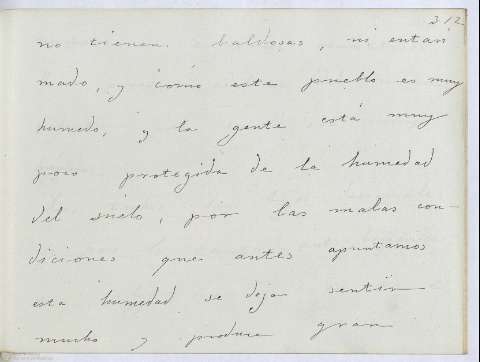 312
no tienen baldosas, ni entari
mado, y como este pueblo es muy
humedo, y la gente está muy
poco protegida de la humedad
del suelo, por las malas con-
diciones que antes apuntamos
esta humedad se deja sentir
mucho y produce gran